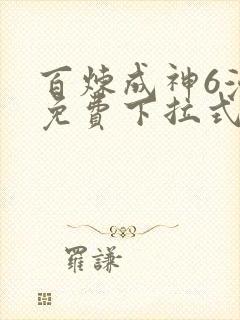 百炼成神6
免费下拉式
羅謙